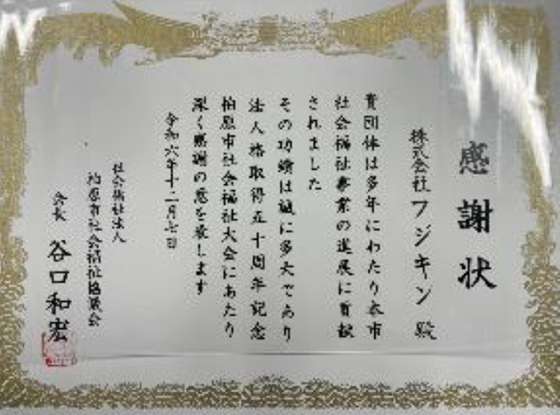 感謝状
株式会社フジキン 殿
貴団体は多年にわたり本市
社会福祉事業の進展に貢献
されました
その功績は誠に多大であり
法人格取得五十周年記念
柏原市社会福祉大会にあたり
深く感謝の意を表します
令和六年十二月七日
社会福祉法人
柏原市社会福祉協議会
会長 谷口和宏